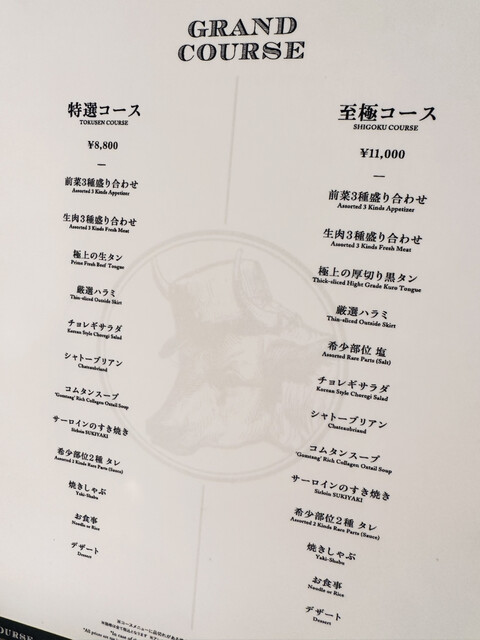 GRAND
COURSE
特選コース
TOKUSEN COURSE
¥8,800
前菜3種盛り合わせ
Assorted 3 Kinds Appetizer
生肉3種盛り合わせ
Assorted 3 Kinds Fresh Meat
極上の生タン
Prime Fresh Beef Tongue
厳選ハラミ
Thin-sliced Outside Skirt
チョレギサラダ
Korean Style Choregi Salad
シャトーブリアン
Chateaubriand
コムタンスープ
'Gomtang' Rich Collagen Oxtail Soup
サーロインのすき焼き
Sirloin SUKIYAKI
希少部位2種 タレ
Assorted 2 Kinds Rare Parts (Sauce)
焼きしゃぶ
Yaki-Shabu
お食事
Noodle or Rice
デザート
Dessert
至極コース
SHIGOKU COURSE
¥11,000
前菜3種盛り合わせ
Assorted 3 Kinds Appetizer
生肉3種盛り合わせ
Assorted 3 Kinds Fresh Meat
極上の厚切り黒タン
Thick-sliced Hight Grade Kuro Tongue
厳選ハラミ
Thin-sliced Outside Skirt
希少部位 塩
Assorted Rare Parts (Salt)
チョレギサラダ
Korean Style Choregi Salad
シャトーブリアン
Chateaubriand
コムタンスープ
'Gomtang' Rich Collagen Oxtail Soup
サーロインのすき焼き
Sirloin SUKIYAKI
希少部位2種 タレ
Assorted 2 Kinds Rare Parts (Sauce)
焼きしゃぶ
Yaki-Shabu
お食事
Noodle or Rice
デザート
Dessert